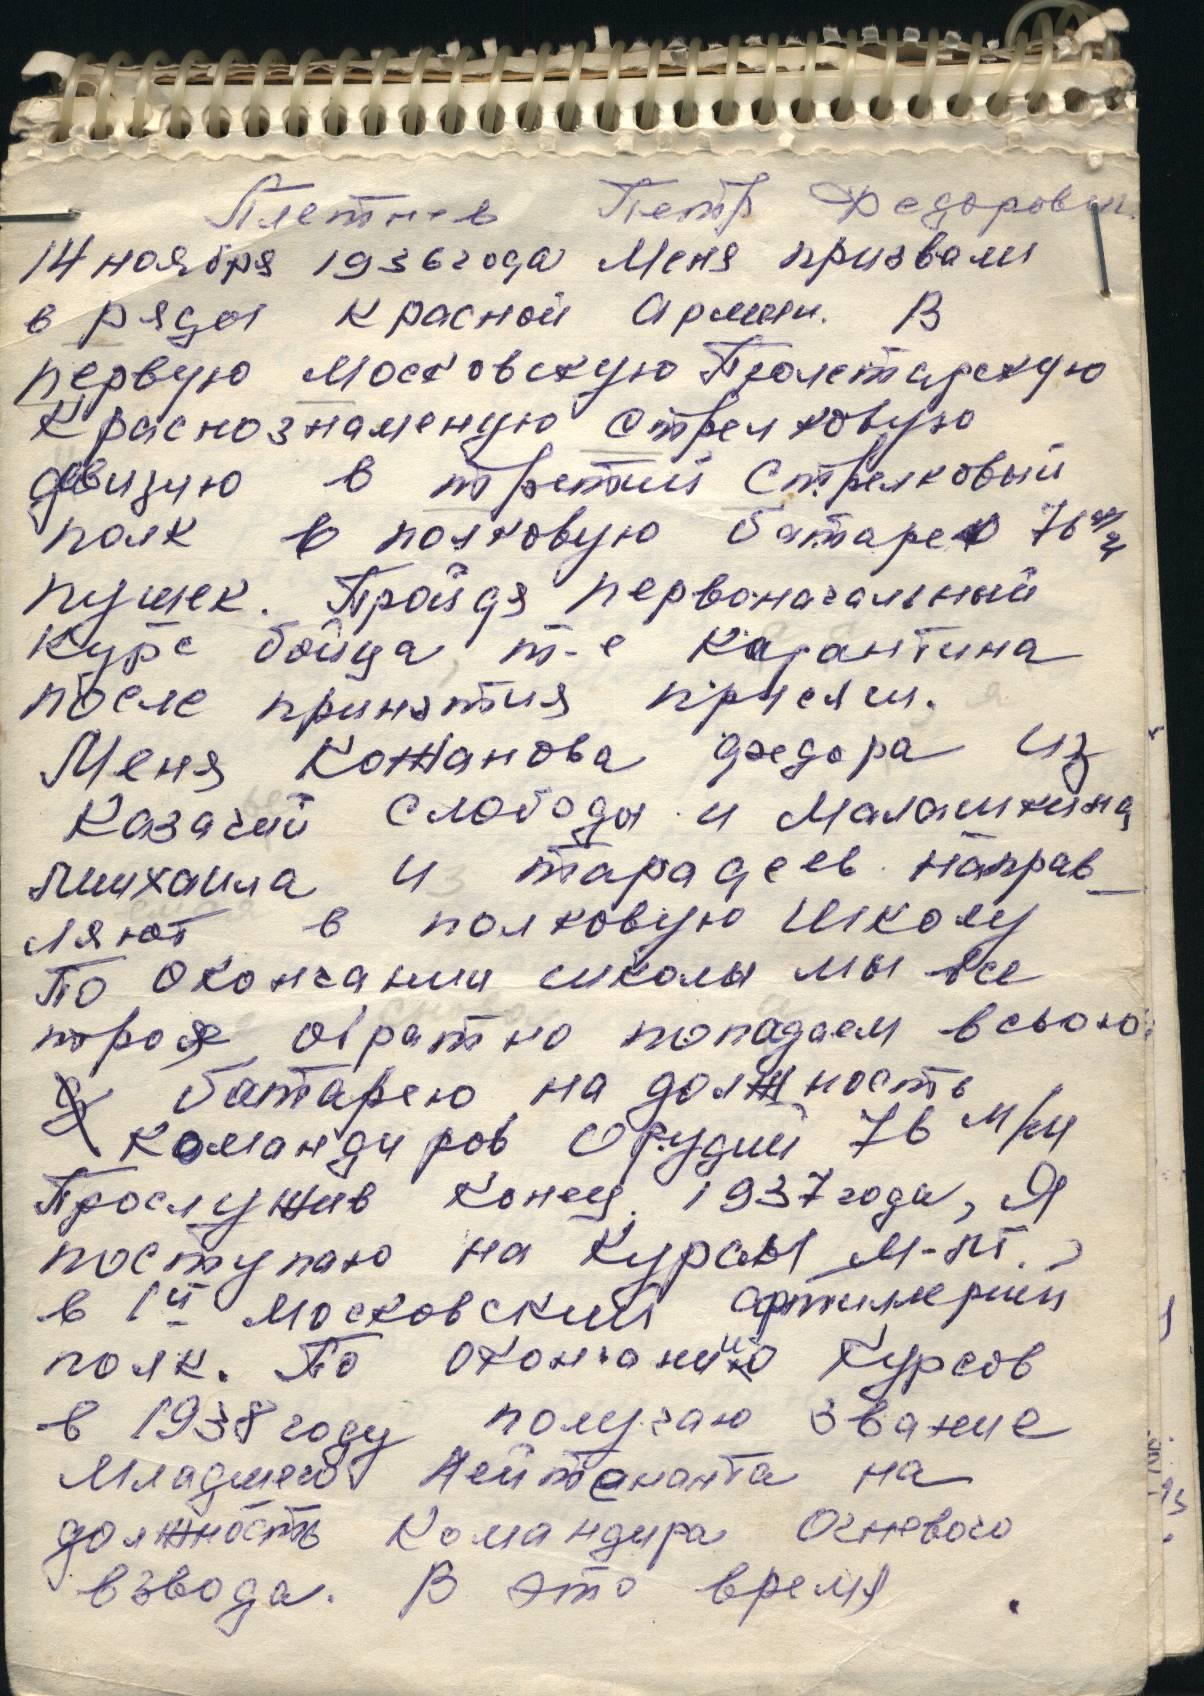 Плетнев Петр Федорович
14 ноября 1936 года Меня призвали
в ряды Красной Армии. В
первую Московскую Пролетарскую
Краснознаменую Стрелковую
дивизию в третий Стрелковый
полк в полковую батарею 76 м/м
пушек. Пройдя первоначальный
курс бойца, т-е карантина
после принятия присяги.
Меня Кожанова Федора из
Казачий Слободы и Малашкина
Михаила и Тарадеев Направ_
ляют в полковую Школу
По окончании школы мы все
трое обратно попадаем всьою
батарею на должность
Командиров Орудий 76 м/м
Прослужив Конец 1937 года, Я
поступаю на Курсы М-лт.,
в 1й Московский артиллерий
полк. По окончанию Курсов
в 1938 году получаю звание
Младшего Лейтенанта на
должность Командира Огневого
взвода. В это время